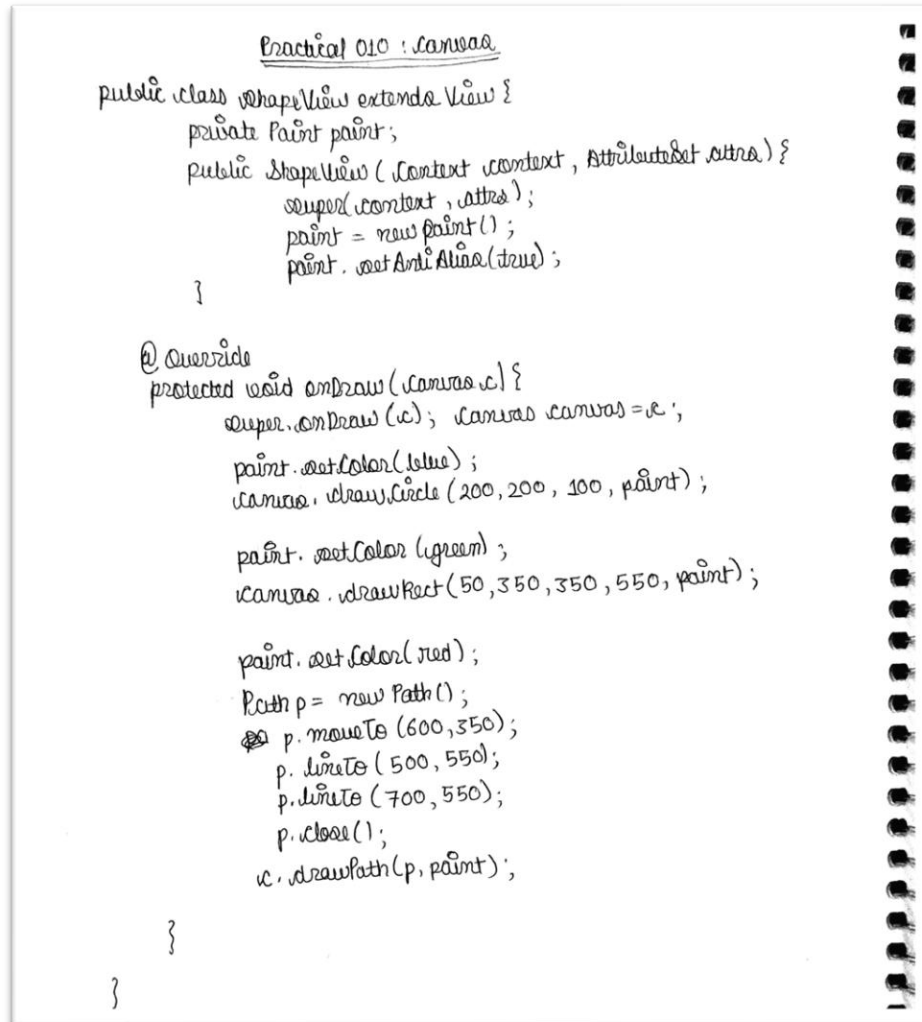 Practical 010 : Canvas
public class ShapeView extends View {
private Paint paint;
public ShapeView ( Context context , AttributeSet attrs) {
super( context , attrs );
paint = new Paint() ;
paint. setAntiAlias(true) ;
}
@Override
protected void onDraw( Canvas c) {
super.onDraw (c) ; Canvas canvas = c ;
paint.setColor(blue) ;
canvas. drawCircle (200, 200, 100, paint) ;
paint. setColor (green) ;
canvas. drawRect(50,350,350,550, paint) ;
paint. setColor(red) ;
Path p = new Path() ;
p. moveTo (600,350);
p. lineTo ( 500, 550);
p.lineTo (700,550);
p.close();
c. drawPath(p, paint) ;
}
}